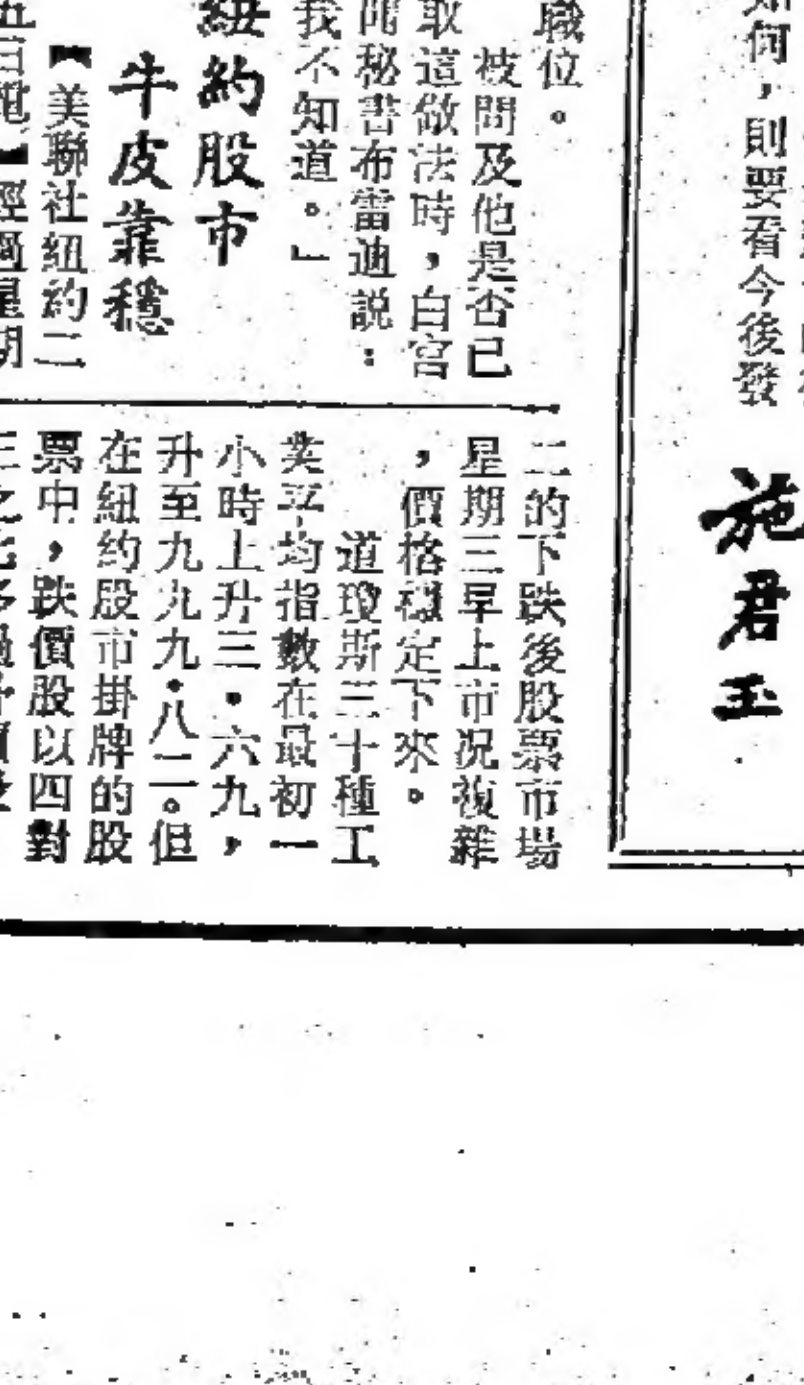 何，則要看今後發
施君玉
職位。
被問及他是否已
取這做法時，白宮
聞秘書布雷迪説：
我不知道。」
紐約股市
牛皮靠穩
【美聯社紐約二
五日電】經過星期
二的下跌後股票市場
星期三早上市况複雜
，價格穩定下來。
道瓊斯三十種工
業平均指數在最初一
小時上升三．六九，
升至九九九．八二。但
在紐約股市掛牌的股
票中，跌價股以四對
三之比多過升價股